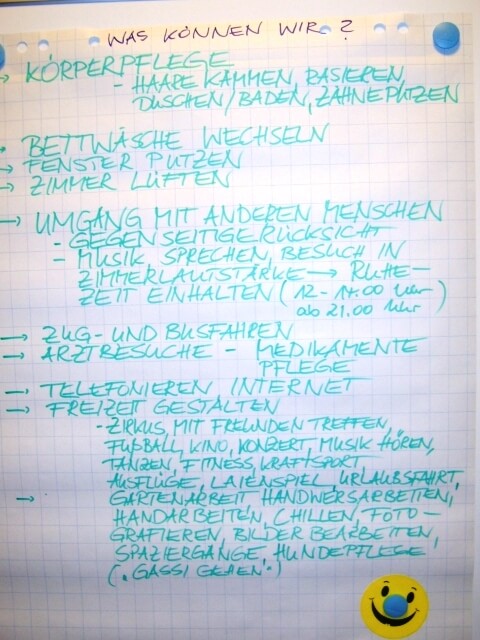 WAS KÖNNEN WIR?
→ KÖRPERPFLEGE
- HAARE KÄMMEN, RASIEREN,
DUSCHEN/BADEN, ZÄHNE PUTZEN
→ BETTWÄSCHE WECHSELN
→ FENSTER PUTZEN
→ ZIMMER LÜFTEN
→ UMGANG MIT ANDEREN MENSCHEN
- GEGENSEITIGE RÜCKSICHT
- MUSIK, SPRECHEN, BESUCH IN
ZIMMERLAUTSTÄRKE → RUHE-
ZEIT EINHALTEN (12-14.00 Uhr
ab 21.00 Uhr)
→ ZUG- UND BUSFAHREN
→ ARZTBESUCHE - MEDIKAMENTE
PFLEGE
→ TELEFONIEREN INTERNET
→ FREIZEIT GESTALTEN
- ZIRKUS, MIT FREUNDEN TREFFEN,
FUßBALL, KINO, KONZERT, MUSIK HÖREN,
TANZEN, FITNESS, KRAFTSPORT
AUSFLÜGE, LAIENSPIEL, URLAUBSFAHRT,
→ GARTENARBEIT HANDWERSARBEITEN,
HANDARBEITEN, CHILLEN, FOTO-
GRAFIEREN, BILDER BEARBEITEN,
SPAZIERGÄNGE, HUNDEPFLEGE
("GASSI GEHEN")